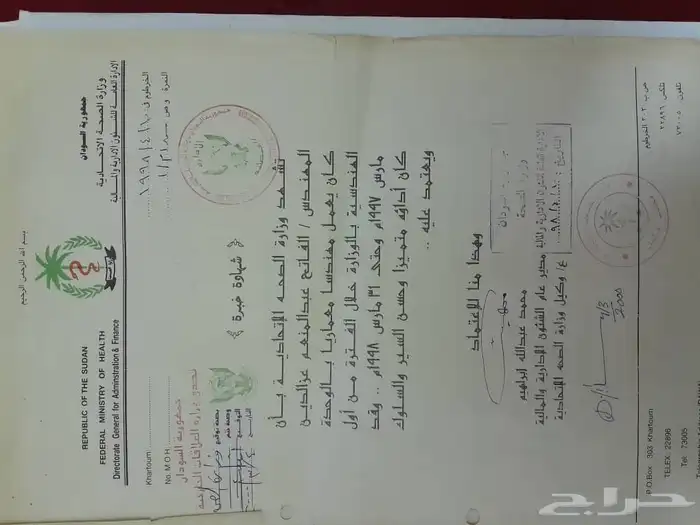 بسم الله الرحمن الرحيم
REPUBLIC OF THE SUDAN
FEDERAL MINISTRY OF HEALTH
Directorate General for Adminstration & Finance
جمهورية السودان
وزارة الصحة الاتحادية
الإدارة العامة للشئون الإدارية والمالية
Khartoum
No. M.O.H.
الخرطوم في ١٩٩٨/٤/١٦
النمرة
جمهورية السودان
﴿ شهادة خبرة ﴾
تشهد وزارة الصحة الإتحادية بان
المهندس / الفاتح عبدالمنعم عزالدين
كان يعمل مهندسا معماريا بالوحدة
الهندسية بالوزارة خلال الفترة من أول
مارس ١٩٩٧م وحتى ٣١ مارس ١٩٩٨م .. وقد
كان أدائه متميزا وحسن السير والسلوك
ويعتمد عليه ..
وهذا منا للإعتماد
محمد عبدالله ابراهيم
مدير عام الشئون الإدارية والمالية
ع/ وكيل وزارة الصحة الإتحادية
2000
P.O.Box 303 Khartoum
TELEX 22896
Tel 73005
ص ب ٣٠٣ الخرطوم
تلكس ٢٢٨٩٦
تلفون ٧٣٠٠٥
حراج